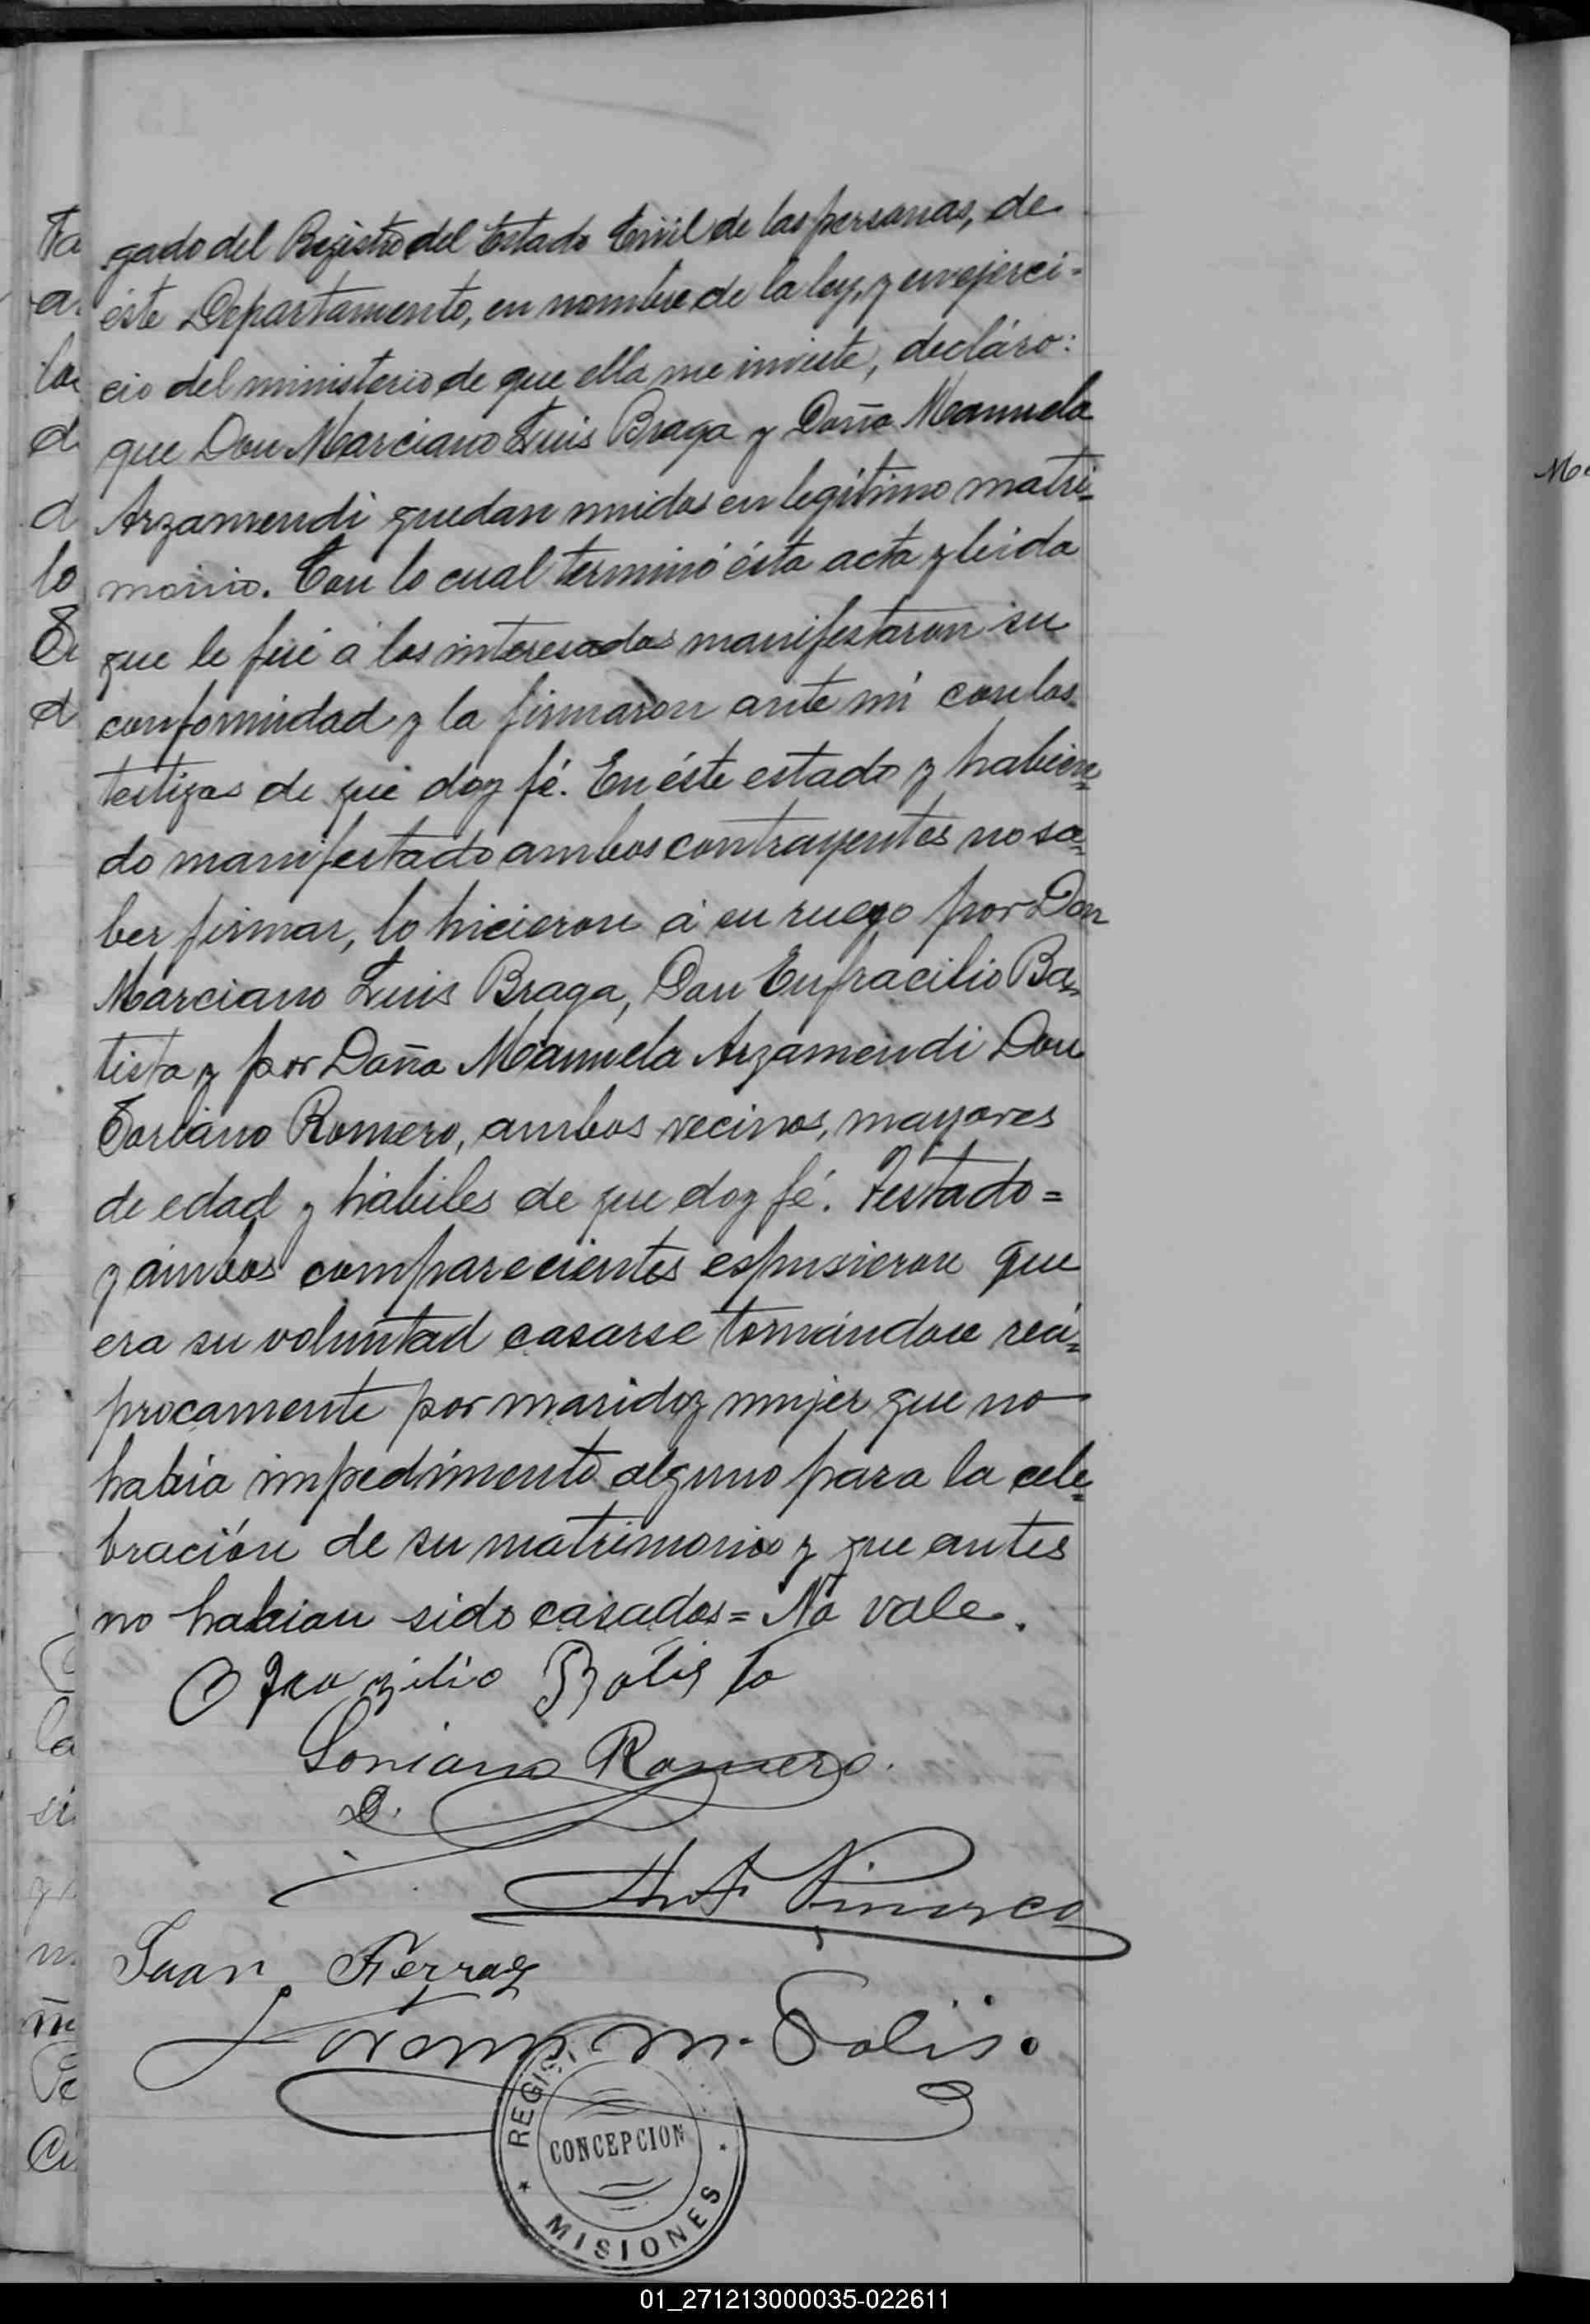 gado del Registro del Estado Civil de las personas, de
éste Departamento, en nombre de la ley, y en ejerci-
cio del ministerio de que ella me inviste, decláro:
que Don Marciano Luis Braga y Doña Manuela
Arzamendi quedan unidos en legítimo matri-
monio. Con lo cual terminó ésta acta y leida
que le fué á los interesados manifestaron su
conformidad y la firmaron ante mi con los
testigos de que doy fé. En éste estado y habien-
do manifestado ambos contrayentes no sa-
ber firmar, lo hicieron á su ruego por Don
Marciano Luis Braga, Don Eufracilio Ba-
tista y por Doña Manuela Arzamendi Don
Romero, ambos vecinos, mayores
de edad y hábiles de que doy fé. Testado =
y ambos comparecientes espusieron que
era su voluntad casarse tomándose recí-
procamente por marido y mujer que no
habia impedimento alguno para la cele-
bración de su matrimonio y que antes
no habian sido casados = No vale.
Batista
Romero.
Juan Ferraz
M. Solis.
REGIS
CONCEPCION
MISIONES
01_271213000035-022611